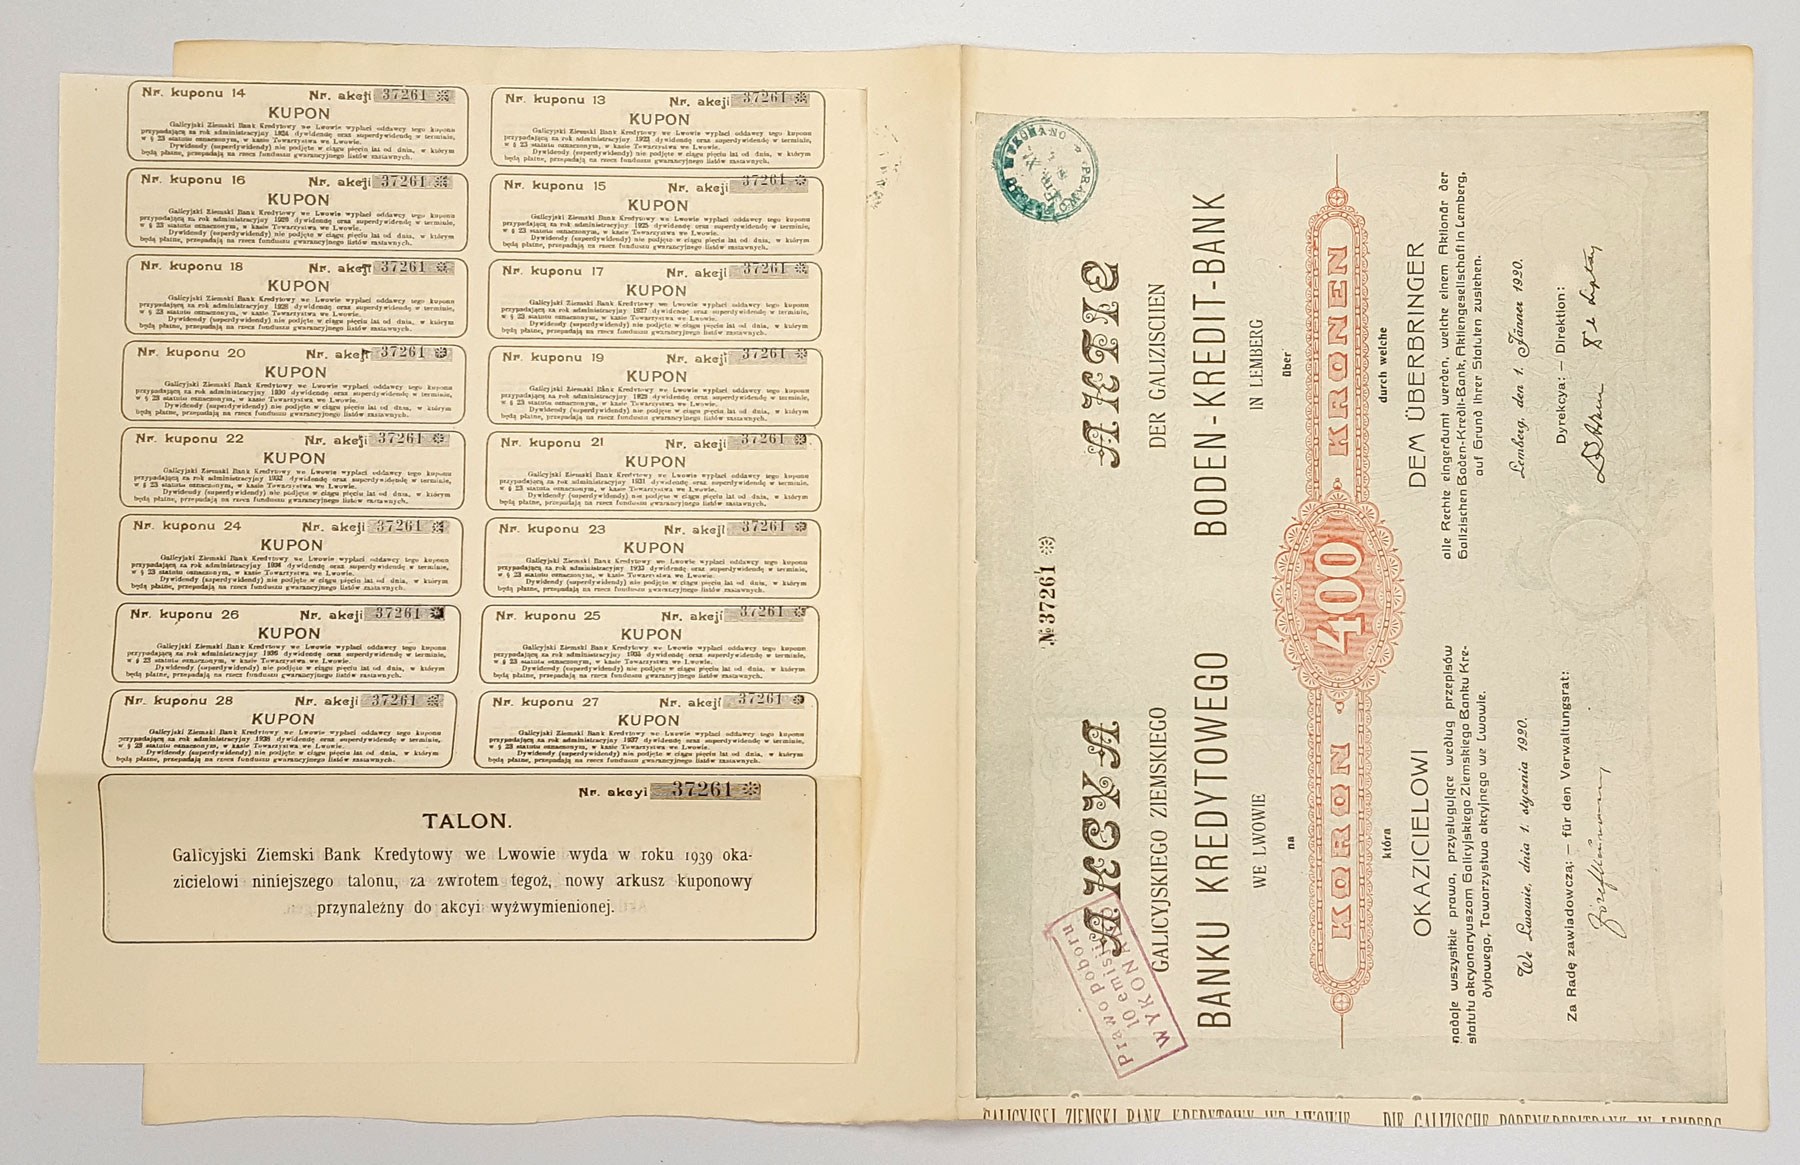 Nr. kuponu 14 Nr. akcji 37261
KUPON
Galicyjski Ziemski Bank Kredytowy we Lwowie wypłaci oddawcy tego kuponu
przypadającą za rok administracyjny 1924 dywidendę oraz superdywidendę w terminie,
w § 23 statutu oznaczonym, w kasie Towarzystwa we Lwowie.
Dywidendy (superdywidendy) nie podjęte w ciągu pięciu lat od dnia, w którym
będą płatne, przepadają na rzecz funduszu gwarancyjnego listów zastawnych.
Nr. kuponu 13 Nr. akcji 37261
KUPON
Galicyjski Ziemski Bank Kredytowy we Lwowie wypłaci oddawcy tego kuponu
przypadającą za rok administracyjny 1923 dywidendę oraz superdywidendę w terminie,
w § 23 statutu oznaczonym, w kasie Towarzystwa we Lwowie.
Dywidendy (superdywidendy) nie podjęte w ciągu pięciu lat od dnia, w którym
będą płatne, przepadają na rzecz funduszu gwarancyjnego listów zastawnych.
Nr. kuponu 16 Nr. akcji 37261
KUPON
Galicyjski Ziemski Bank Kredytowy we Lwowie wypłaci oddawcy tego kuponu
przypadającą za rok administracyjny dywidendę oraz superdywidendę w terminie,
w § 23 statutu oznaczonym, w kasie Towarzystwa we Lwowie.
Dywidendy (superdywidendy) nie podjęte w ciągu pięciu lat od dnia, w którym
będą płatne, przepadają na rzecz funduszu gwarancyjnego listów zastawnych.
Nr. kuponu 15 Nr. akcji 37261
KUPON
Galicyjski Ziemski Bank Kredytowy we Lwowie wypłaci oddawcy tego kuponu
przypadającą za rok administracyjny 1925 dywidendę oraz superdywidendę w terminie,
w § 23 statutu oznaczonym, w kasie Towarzystwa we Lwowie.
Dywidendy (superdywidendy) nie podjęte w ciągu pięciu lat od dnia, w którym
będą płatne, przepadają na rzecz funduszu gwarancyjnego listów zastawnych.
Nr. kuponu 18 Nr. akcji 37261
KUPON
Galicyjski Ziemski Bank Kredytowy we Lwowie wypłaci oddawcy tego kuponu
przypadającą za rok administracyjny dywidendę oraz superdywidendę w terminie,
w § 23 statutu oznaczonym, w kasie Towarzystwa we Lwowie.
Dywidendy (superdywidendy) nie podjęte w ciągu pięciu lat od dnia, w którym
będą płatne, przepadają na rzecz funduszu gwarancyjnego listów zastawnych.
Nr. kuponu 17 Nr. akcji 37261
KUPON
Galicyjski Ziemski Bank Kredytowy we Lwowie wypłaci oddawcy tego kuponu
przypadającą za rok administracyjny 1927 dywidendę oraz superdywidendę w terminie,
w § 23 statutu oznaczonym, w kasie Towarzystwa we Lwowie.
Dywidendy (superdywidendy) nie podjęte w ciągu pięciu lat od dnia, w którym
będą płatne, przepadają na rzecz funduszu gwarancyjnego listów zastawnych.
Nr. kuponu 20 Nr. akcji 37261
KUPON
Galicyjski Ziemski Bank Kredytowy we Lwowie wypłaci oddawcy tego kuponu
przypadającą za rok administracyjny 1930 dywidendę oraz superdywidendę w terminie,
w § 23 statutu oznaczonym, w kasie Towarzystwa we Lwowie.
Dywidendy (superdywidendy) nie podjęte w ciągu pięciu lat od dnia, w którym
będą płatne, przepadają na rzecz funduszu gwarancyjnego listów zastawnych.
Nr. kuponu 19 Nr. akcji 37261
KUPON
Galicyjski Ziemski Bank Kredytowy we Lwowie wypłaci oddawcy tego kuponu
przypadającą za rok administracyjny 1929 dywidendę oraz superdywidendę w terminie,
w § 23 statutu oznaczonym, w kasie Towarzystwa we Lwowie.
Dywidendy (superdywidendy) nie podjęte w ciągu pięciu lat od dnia, w którym
będą płatne, przepadają na rzecz funduszu gwarancyjnego listów zastawnych.
Nr. kuponu 22 Nr. akcji 37261
KUPON
Galicyjski Ziemski Bank Kredytowy we Lwowie wypłaci oddawcy tego kuponu
przypadającą za rok administracyjny 1932 dywidendę oraz superdywidendę w terminie,
w § 23 statutu oznaczonym, w kasie Towarzystwa we Lwowie.
Dywidendy (superdywidendy) nie podjęte w ciągu pięciu lat od dnia, w którym
będą płatne, przepadają na rzecz funduszu gwarancyjnego listów zastawnych.
Nr. kuponu 21 Nr. akcji 37261
KUPON
Galicyjski Ziemski Bank Kredytowy we Lwowie wypłaci oddawcy tego kuponu
przypadającą za rok administracyjny 1931 dywidendę oraz superdywidendę w terminie,
w § 23 statutu oznaczonym, w kasie Towarzystwa we Lwowie.
Dywidendy (superdywidendy) nie podjęte w ciągu pięciu lat od dnia, w którym
będą płatne, przepadają na rzecz funduszu gwarancyjnego listów zastawnych.
Nr. kuponu 24 Nr. akcji 37261
KUPON
Galicyjski Ziemski Bank Kredytowy we Lwowie wypłaci oddawcy tego kuponu
przypadającą za rok administracyjny 1934 dywidendę oraz superdywidendę w terminie,
w § 23 statutu oznaczonym, w kasie Towarzystwa we Lwowie.
Dywidendy (superdywidendy) nie podjęte w ciągu pięciu lat od dnia, w którym
będą płatne, przepadają na rzecz funduszu gwarancyjnego listów zastawnych.
Nr. kuponu 23 Nr. akcji 37261
KUPON
Galicyjski Ziemski Bank Kredytowy we Lwowie wypłaci oddawcy tego kuponu
przypadającą za rok administracyjny 1933 dywidendę oraz superdywidendę w terminie,
w § 23 statutu oznaczonym, w kasie Towarzystwa we Lwowie.
Dywidendy (superdywidendy) nie podjęte w ciągu pięciu lat od dnia, w którym
będą płatne, przepadają na rzecz funduszu gwarancyjnego listów zastawnych.
Nr. kuponu 26 Nr. akcji 37261
KUPON
Galicyjski Ziemski Bank Kredytowy we Lwowie wypłaci oddawcy tego kuponu
przypadającą za rok administracyjny 1936 dywidendę oraz superdywidendę w terminie,
w § 23 statutu oznaczonym, w kasie Towarzystwa we Lwowie.
Dywidendy (superdywidendy) nie podjęte w ciągu pięciu lat od dnia, w którym
będą płatne, przepadają na rzecz funduszu gwarancyjnego listów zastawnych.
Nr. kuponu 25 Nr. akcji 37261
KUPON
Galicyjski Ziemski Bank Kredytowy we Lwowie wypłaci oddawcy tego kuponu
przypadającą za rok administracyjny 1935 dywidendę oraz superdywidendę w terminie,
w § 23 statutu oznaczonym, w kasie Towarzystwa we Lwowie.
Dywidendy (superdywidendy) nie podjęte w ciągu pięciu lat od dnia, w którym
będą płatne, przepadają na rzecz funduszu gwarancyjnego listów zastawnych.
Nr. kuponu 28 Nr. akcji 37261
KUPON
Galicyjski Ziemski Bank Kredytowy we Lwowie wypłaci oddawcy tego kuponu
przypadającą za rok administracyjny 1938 dywidendę oraz superdywidendę w terminie,
w § 23 statutu oznaczonym, w kasie Towarzystwa we Lwowie.
Dywidendy (superdywidendy) nie podjęte w ciągu pięciu lat od dnia, w którym
będą płatne, przepadają na rzecz funduszu gwarancyjnego listów zastawnych.
Nr. kuponu 27 Nr. akcji 37261
KUPON
Galicyjski Ziemski Bank Kredytowy we Lwowie wypłaci oddawcy tego kuponu
przypadającą za rok administracyjny 1937 dywidendę oraz superdywidendę w terminie,
w § 23 statutu oznaczonym, w kasie Towarzystwa we Lwowie.
Dywidendy (superdywidendy) nie podjęte w ciągu pięciu lat od dnia, w którym
będą płatne, przepadają na rzecz funduszu gwarancyjnego listów zastawnych.
Nr. akcyi 37261
TALON.
Galicyjski Ziemski Bank Kredytowy we Lwowie wyda w roku 1939 oka-
zicielowi niniejszego talonu, za zwrotem tegoż, nowy arkusz kuponowy
przynależny do akcyi wyżwymienionej.
№ 37261
AKCYA
GALICYJSKIEGO ZIEMSKIEGO
BANKU KREDYTOWEGO
WE LWOWIE
na
KORON 400 KRONEN
która
OKAZICIELOWI
nadaje wszystkie prawa, przysługujące według przepisów
statutu akcyonaryuszom Galicyjskiego Ziemskiego Banku Kre-
dytowego, Towarzystwa akcyjnego we Lwowie.
We Lwowie, dnia 1. stycznia 1920.
Za Radę zawiadowczą: — für den Verwaltungsrat:
AKTIE
DER GALIZISCHEN
BODEN-KREDIT-BANK
IN LEMBERG
über
durch welche
DEM ÜBERBRINGER
alle Rechte eingeräumt werden, welche einem Aktionär der
Galizischen Boden-Kredit-Bank, Aktiengesellschaft in Lemberg,
auf Grund ihrer Statuten zustehen.
Lemberg, den 1. Jänner 1920.
Dyrekcya: — Direktion:
Prawo poboru
10 emisji
WYKONANO
PRAWO
WYKONANO
GALICYJSKI ZIEMSKI BANK KREDYTOWY WE LWOWIE DIE GALIZISCHE BODENKREDITBANK IN LEMBERG